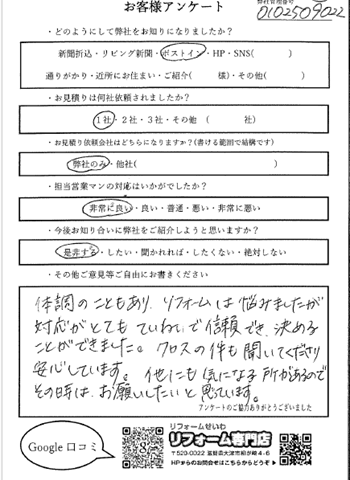 お客様アンケート
弊社管理番号
0102509022
・どのようにして弊社をお知りになりましたか？
新聞折込・リビング新聞・ポストイン・HP・SNS(　　　)
通りがかり・近所にお住まい・ご紹介(　　　様)・その他(　　　)
・お見積りは何社依頼されましたか？
1社・2社・3社・その他（　　　社）
・お見積り依頼会社はどちらになりますか？(書ける範囲で結構です)
弊社のみ・他社(　　　)
・担当営業マンの対応はいかがでしたか？
非常に良い・良い・普通・悪い・非常に悪い
・今後お知り合いに弊社をご紹介しようと思いますか？
是非する・したい・聞かれれば・したくない・絶対しない
・その他ご意見等ご自由にお書きください
体調のこともあり、リフォームは悩みましたが
対応がとてもていねいで信頼でき、決める
ことができました。クロスの件も聞いてくださり
安心しています。他にも気になる所があるので
その時は、お願いしたいと思っています。
アンケートのご協力ありがとうございました
Google 口コミ
リフォームせいわ
リフォーム専門店
〒520-0022 滋賀県大津市柳が崎4-6
HPからのお問合せはこちらからどうぞ